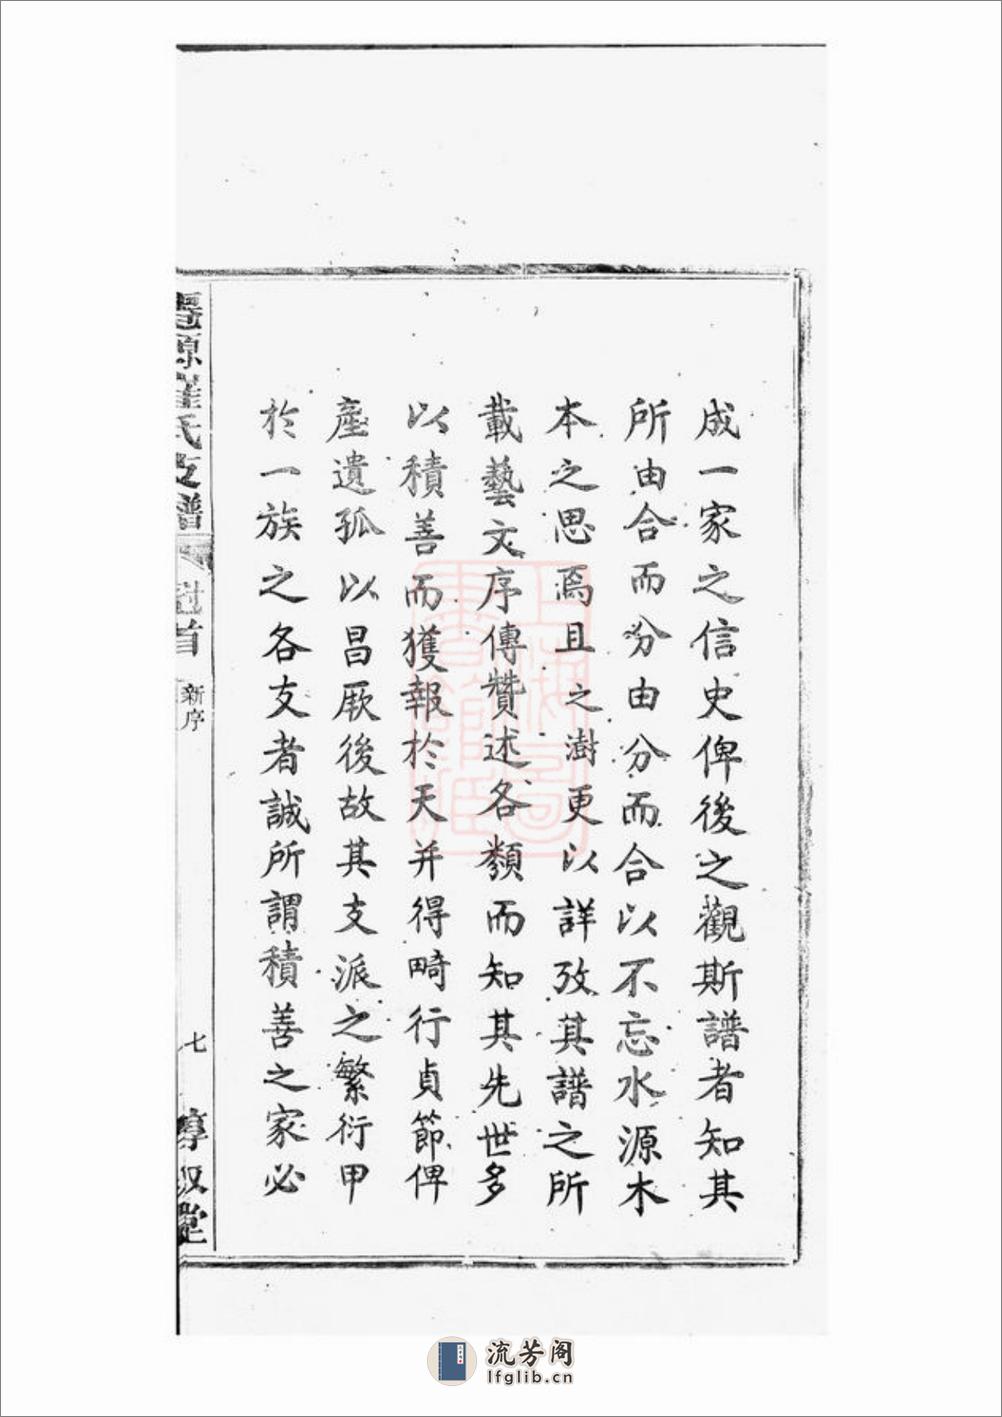 成一家之信史俾後之觀斯譜者知其
所由合而分由分而合以不忘水源木
本之思焉且之澍更以詳攷其譜之所
載藝文序傳贊述各類而知其先世多
以積善而獲報於天并得畸行貞節俾
產遺孤以昌厥後故其支派之繁衍甲
於一族之各支者誠所謂積善之家必
源羅氏支譜 首 新序 七 敦叙堂
上海圖書館藏
流芳阁
lfglib.cn